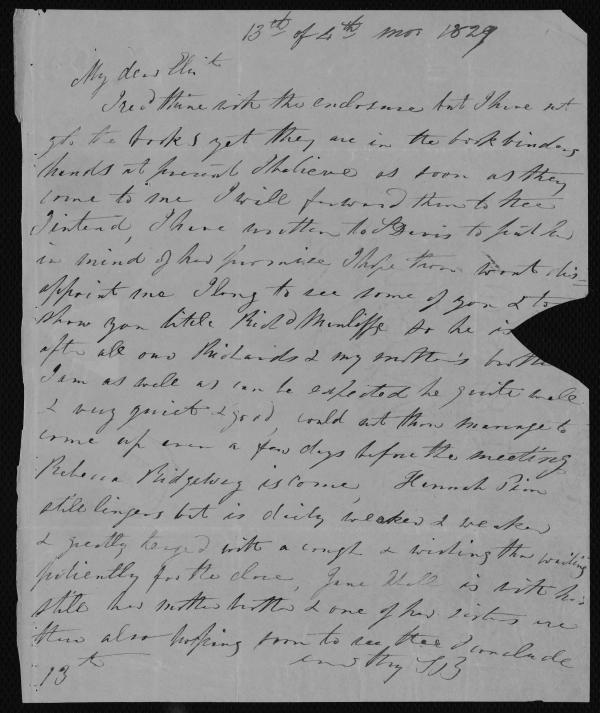 13th of 4th mos 1829
My dear Elizth
I recd thine with the enclosure but I have not
got the books yet they are in the bookbinders
hands at present I believe as soon as they
come to me I will forward them to thee
I intend, I have written to S Davis to put her
in mind of her promise I hope thou wont dis=
appoint me I long to see some of you & to
show you little Richd so he is
after all our Richards & my mother's brother
I am as well as can be expected he quite well
& very quiet & good, could not thou manage to
come up even a few days before the meeting
Rebecca Ridgway is come, Hannah Pim
still lingers but is daily weaker & weaker
& greatly with a cough & waiting
patiently for the close, Jane is with his
still her mother brother & one of her sisters are
there also hoping soon to see thee I conclude
13th am thy